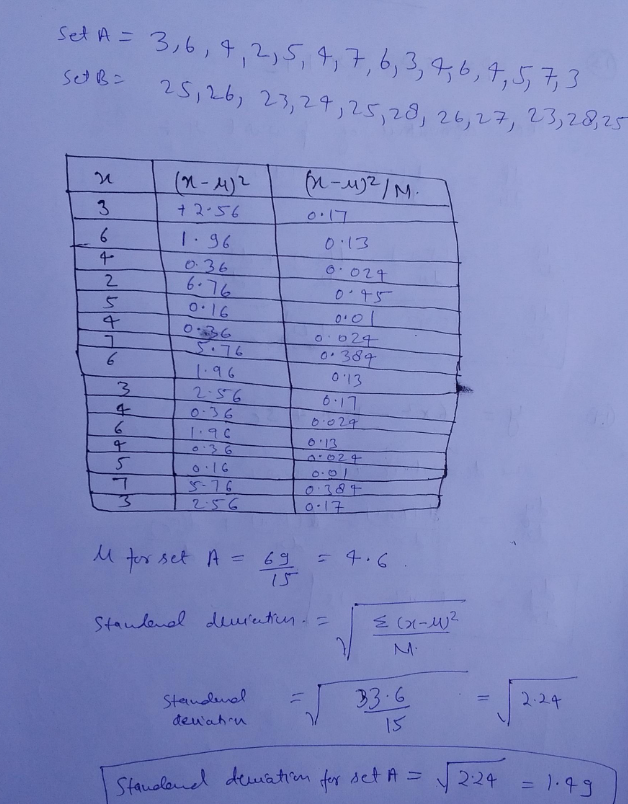 Set A = 3,6,4,2,5,4,7,6,3,4,6,4,5,7,3
Set B = 25,26, 23,24,25,28, 26,27, 23,28,25
x (x-μ)² (x-μ)²/M.
3 +2.56 0.17
6 1.96 0.13
4 0.36 0.024
2 6.76 0.45
5 0.16 0.01
4 0.36 0.024
7 5.76 0.384
6 1.96 0.13
3 2.56 0.17
4 0.36 0.024
6 1.96 0.13
4 0.36 0.024
5 0.16 0.01
7 5.76 0.384
3 2.56 0.17
μ for set A = 69/15 = 4.6.
Standard deviation = √(Σ(x-μ)²/M.)
Standard deviation = √(33.6/15) = √2.24
Standard deviation for set A = √2.24 = 1.49